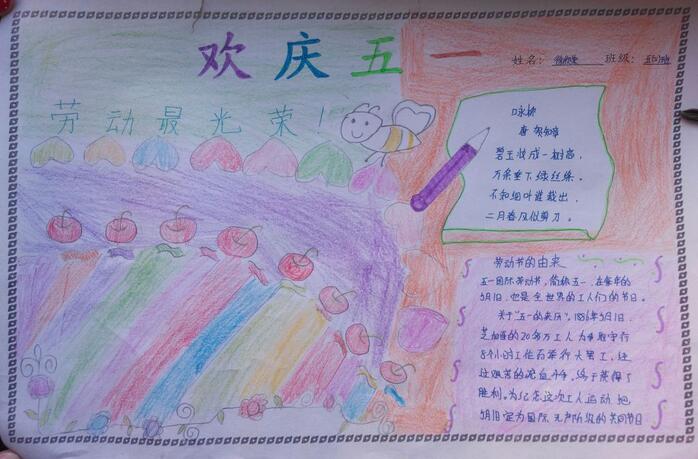 欢庆五一
姓名: 班级:
劳动最光荣！
咏柳
唐 贺知章
碧玉妆成一树高，
万条垂下绿丝绦。
不知细叶谁裁出，
二月春风似剪刀。
劳动节的由来
五一国际劳动节，简称五一，在每年的
5月1日，也是全世界的工人们的节日。
关于"五一的来历"，1886年5月1日，
芝加哥的20多万工人为争取守行
8个小时工作而举行大罢工，经
过艰苦的流血斗争，终于获得了
胜利。为纪念这次工人运动 把
5月1日定为国际无产阶级的共同节日